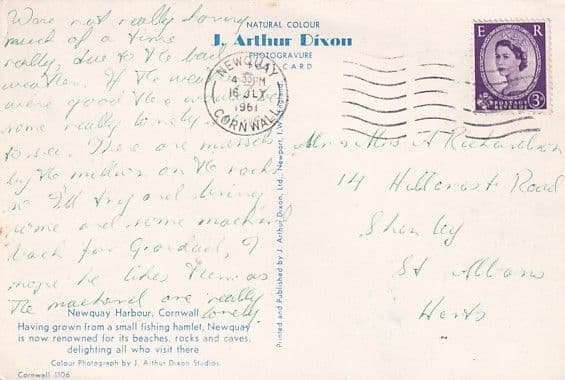 We're not really having
much of a time
really, due to the bad
weather. If the weather
were good there are
some really lovely
to see. There are mussels
by the million on the rocks
so I'll try and bring
some and some mackerel
back for Grandad, I
hope he likes them as
the mackerel are really
lovely.
NATURAL COLOUR
J. Arthur Dixon
PHOTOGRAVURE
CARD
NEWQUAY
4-30PM
16 JLY
1961
CORNWALL
E R
POSTAGE
3D
Mr & Mrs A Richardson
14 Hillcrest Road
Shenley
St Albans
Herts
Printed and Published by J. Arthur Dixon, Ltd., Newport, I.W. England
Newquay Harbour, Cornwall
Having grown from a small fishing hamlet, Newquay
is now renowned for its beaches, rocks and caves,
delighting all who visit there
Colour Photograph by J. Arthur Dixon Studios.
Cornwall 1106